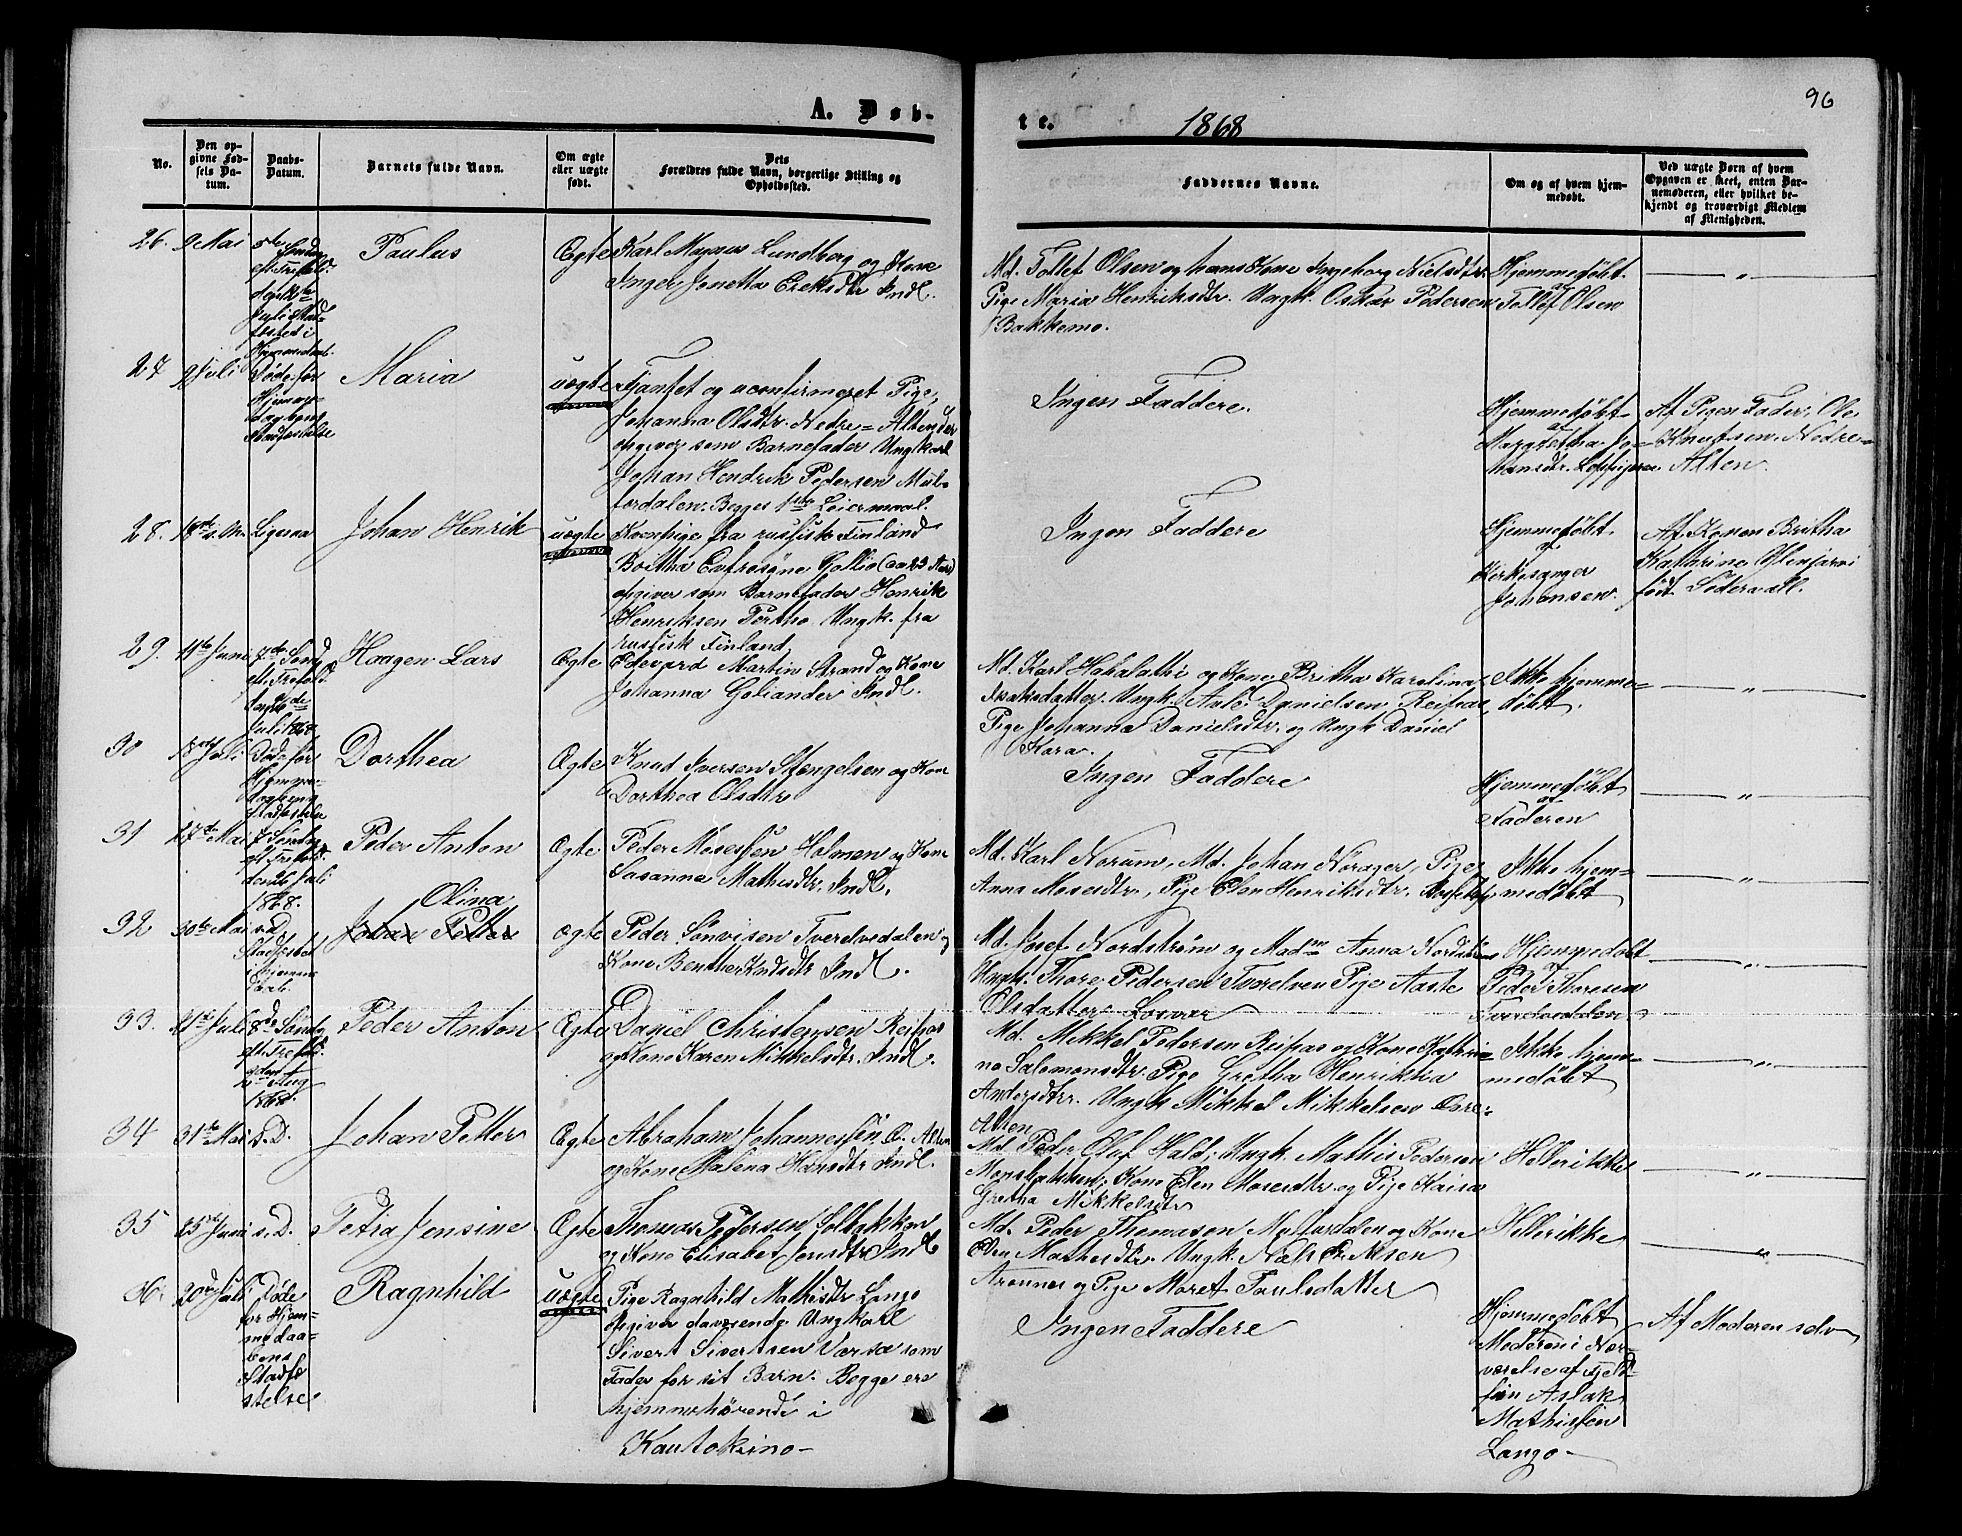 A. Døb-
te.
1868
96
No.
Den op-
givne Fød-
sels Da-
tum.
Daabs-
Datum.
Barnets fulde Navn.
Om ægte
eller uægte
født.
Dets
Forældres fulde Navn, borgerlige Stilling og
Opholdssted.
Faddernes Navne.
Om og af hvem hjem-
medøbt.
Ved uægte Børn af hvem
Opgaven er skeet, enten Bar-
nemoderen, eller hvilket be-
kjendt og troværdigt Medlem
af Menigheden.
26. 9 Mai
5te Søndag
eft. Trefold.
Juli Stad-
fæsted i
Hjemmedaab.
Paulus
Ægte
Karl Magnus Lundborg og Kone
Inger Jonetta Eriksdtr Indl.
Md. Tollef Olsen og hans Kone Ingeborg Nielsdtr.
Pige Maria Henriksdtr. Ungk. Oskar Pedersen
Bakkemo.
Hjemmedøbt
af
Tollef Olsen
— " —
27 9 Juli
Døde før
Hjemme-
daabens
Stadfæstelse
Maria
uægte
Tjantet og uconfirmeret Pige,
Johanna Olsdtr. Nedre-Alten der
opgiver som Barnefader Ungkarl
Johan Hendrik Pedersen Mat-
tordalen. Begges 1ste Leiermaal.
Ingen Faddere.
Hjemmedøbt
af
Margretha Jo-
hansdtr.
Af Pigen Fader, Ole
Knutsen Nedre-
Alten.
28. 18de s. M.
Ligesaa
Johan Henrik
uægte
Kvenpige fra russisk Finland
Britha Eufrosyne Gollio (ca 23 Aar)
opgiver som Barnefader Henrik
Henriksen Pertho Ungk. fra
russisk Finland
Ingen Faddere
Hjemmedøbt
af
Kirkesanger
Johansen.
Af Konen Britha
Kathrina Ylenjarvi
født Søderwall.
29. 11te Juni
7de Sønd.
eft. Trefold.
Juli 1868
Haagen Lars
Ægte
Edevard Martin Strand og Kone
Johanna Goliander Indl.
Md. Karl Hakalathi og Kone Britha Karolina
Isaksdatter. Ungk. Danielsen Reipas,
Pige Johanna Danielsdtr. og Ungk Daniel
Kara.
Ikke hjemme-
døbt.
— " —
30 18de Juli
Død før
Hjemme-
daabens
Stadfæstelse
Dorthea
Ægte
Knud Iversen Stengelsen og Kone
Dorthea Olsdtr
Ingen Faddere
Hjemmedøbt
af
Faderen
— " —
31 27de Mai
7 Søndag
eft. Trefold.
den 26 Juli
1868.
Peder Anton
Ægte
Peder Mosessen Holmen og Kone
Susanna Mathisdtr. Indl.
Md. Karl Norum, Md. Johan Norager, Pige
Anna Mosesdtr., Pige Elen Henriksdtr.
Ikke hjem-
medøbt
— " —
32 30te Mai
s. D.
Stadfæstet
i Hjemme
daab.
Olina
Johan Petter
ægte
Peder Tverelvedalen og
Kone Benthe Knudsdtr Indl.
Md. Josef Nordstrøm og Madme Anna Nordstrøm
Ungk. Thore Pedersen Tverelven Pige Aaste
Olsdatter Losvar
Hjemmedøbt
af
Peder Thoresen
Tverelvedalen.
— " —
33. 11te Juli
8de Søndg
eft. Trefold.
den
2den Aug
1868.
Peder Anton
Ægte
Daniel Christensen Reipas
og Kone Karen Mikkelsdtr. Indl.
Md. Mikkel Pedersen Reipas og Kone Kathri-
na Salomonsdtr. Pige Gretha Henrikka
Andersdtr. Ungk Mikkel Mikkelsen Øvre-
Alten
Ikke hjem-
medøbt
— " —
34 31te Mai
s. D.
Johan Petter
Ægte
Abraham Johannessen Ø. Alten
og Kone Malena Hansdtr Indl.
Md. Peder Oluf Hald, Ungk. Mathis Pedersen
Monsbakken, Kone Elen Mosesdtr og Pige Kaisa
Gretha Mikkelsdtr
Hellerikke
— " —
35 25de Juni
s. D.
Petra Jensine
Ægte
Thomas Pedersen Solbakken
og Kone Elisabet Jensdtr Indl
Md. Peder Thomasen Mattisdalen og Kone
Elen Mathisdtr. Ungk. Nils Eriksen
Aronnes og Pige Maret Paulsdatter
Hellerikke
— " —
36. 20de Juli
Døde
før Hjem-
medaa-
bens
Stadfæ
stelse
Ragnhild
uægte
Pige Ragnhild Mathisdtr Lango
opgiver daværende Ungkarl
Sivert Sivertsen Varsæ som
Fader for sit Barn. Begge ere
hjemmehørende i
Kautokeino –
Ingen Faddere
Hjemmedøbt
af
Moderen i Nær-
værelse af Fjeld-
fin Aslak
Mathisen
Lango –
Af Moderen selv